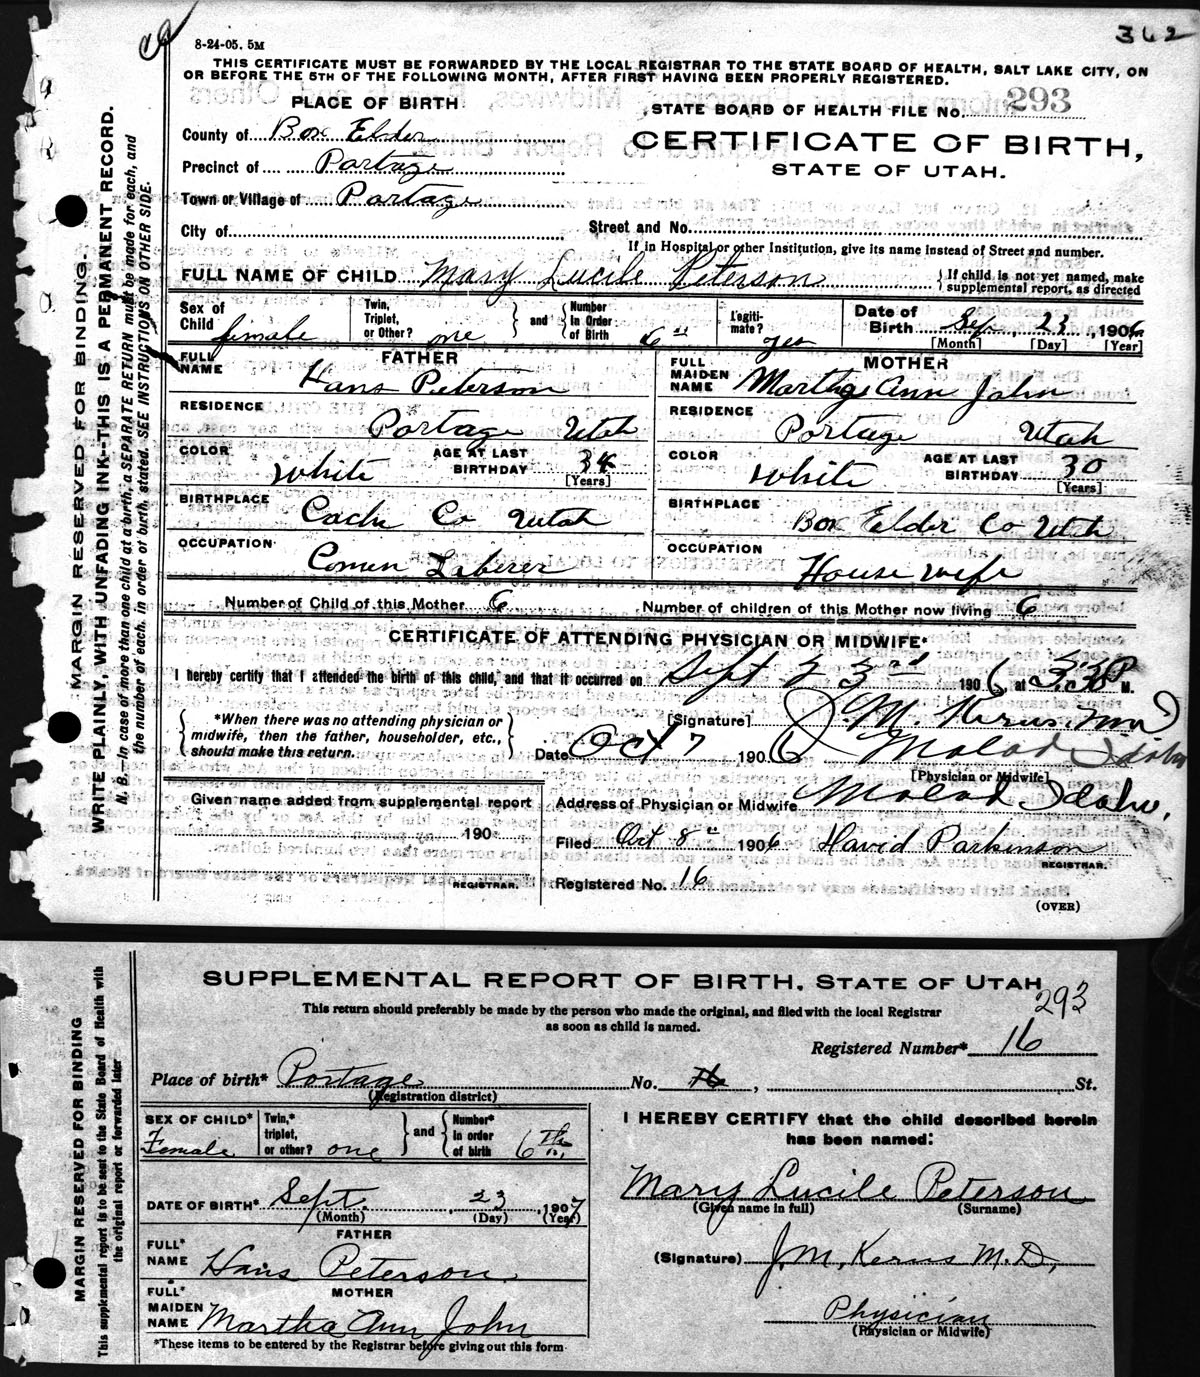 362
8-24-05. 5M
THIS CERTIFICATE MUST BE FORWARDED BY THE LOCAL REGISTRAR TO THE STATE BOARD OF HEALTH, SALT LAKE CITY, ON
OR BEFORE THE 5TH OF THE FOLLOWING MONTH, AFTER FIRST HAVING BEEN PROPERLY REGISTERED.
PLACE OF BIRTH
STATE BOARD OF HEALTH FILE No. 293
County of Box Elder
CERTIFICATE OF BIRTH,
Precinct of Portage
STATE OF UTAH.
Town or Village of Portage
City of
Street and No.
If in Hospital or other Institution, give its name instead of Street and number.
FULL NAME OF CHILD Mary Lucile Peterson
If child is not yet named, make supplemental report, as directed
Sex of Child female
Twin, Triplet, or Other? one
and
Number in Order of Birth 6th
Legiti-mate? yes
Date of Birth Sep. 23, 1906
[Month] [Day] [Year]
FATHER
MOTHER
FULL NAME Hans Peterson
FULL MAIDEN NAME Martha Ann John
RESIDENCE Portage Utah
RESIDENCE Portage Utah
COLOR White AGE AT LAST BIRTHDAY 34 [Years]
COLOR White AGE AT LAST BIRTHDAY 30 [Years]
BIRTHPLACE Cache Co Utah
BIRTHPLACE Box Elder Co Utah
OCCUPATION Comen Laberer
OCCUPATION House wife
Number of Child of this Mother 6
Number of children of this Mother now living 6
CERTIFICATE OF ATTENDING PHYSICIAN OR MIDWIFE*
I hereby certify that I attended the birth of this child, and that it occurred on Sept 23rd 1906, at 3:30 P M.
*When there was no attending physician or
midwife, then the father, householder, etc.,
should make this return.
[Signature] J. M. Kerns, MD
Date Oct 7 1906 Malad Idaho
[Physician or Midwife]
Given name added from supplemental report
190
REGISTRAR.
Address of Physician or Midwife Malad Idaho.
Filed Oct 8th 1906 David Parkinson
REGISTRAR.
Registered No. 16
(OVER)
MARGIN RESERVED FOR BINDING.
WRITE PLAINLY, WITH UNFADING INK--THIS IS A PERMANENT RECORD.
N. B.--In case of more than one child at a birth, a SEPARATE RETURN must be made for each, and
the number of each, in order of birth, stated. SEE INSTRUCTIONS ON OTHER SIDE.
SUPPLEMENTAL REPORT OF BIRTH, STATE OF UTAH
293
This return should preferably be made by the person who made the original, and filed with the local Registrar
as soon as child is named.
Registered Number* 16
Place of birth* Portage No. , St.
(Registration district)
SEX OF CHILD* Female
Twin,* triplet, or other? one
and
Number* in order of birth 6th
I HEREBY CERTIFY that the child described herein
has been named:
DATE OF BIRTH* Sept. 23 1907
(Month) (Day) (Year)
Mary Lucile Peterson
(Given name in full) (Surname)
FATHER
FULL* NAME Hans Peterson
(Signature) J. M. Kerns M. D.
MOTHER
FULL* MAIDEN NAME Martha Ann John
Physician
(Physician or Midwife)
*These items to be entered by the Registrar before giving out this form
MARGIN RESERVED FOR BINDING
This supplemental report is to be sent to the State Board of Health with
the original report or forwarded later